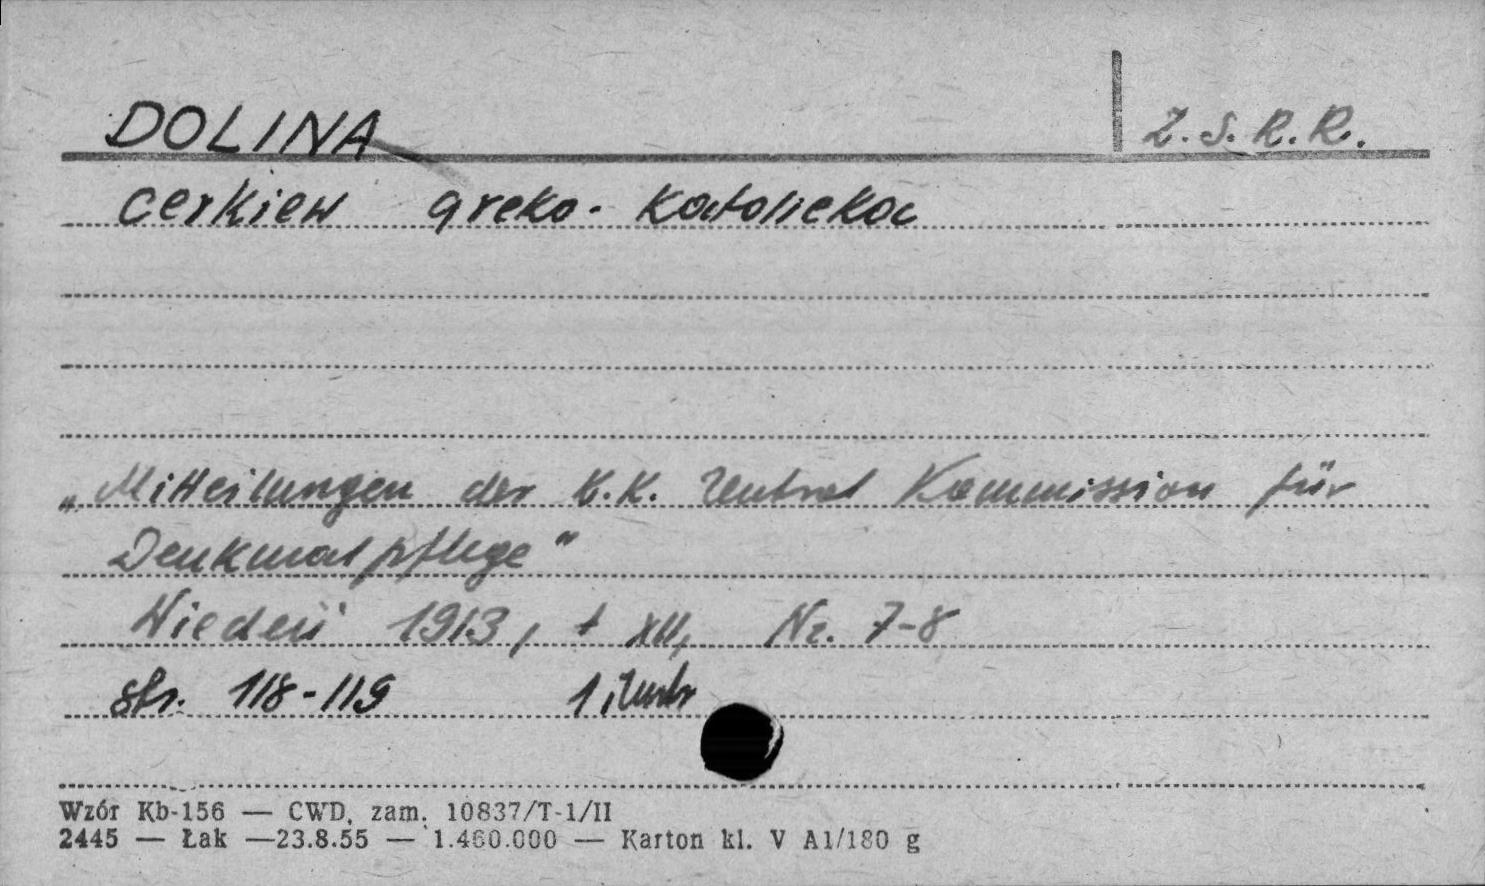 DOLINA Z.S.R.R.
cerkiew greko-katolicka
„Mitteilungen der K.K. Zentral Kommission für
Denkmalpflege"
Wiedeń 1913, t XII, Nr. 7-8
str. 118-119 1 ilustr
Wzór Kb-156 — CWD, zam. 10837/T-1/II
2445 — Łak —23.8.55 — 1.460.000 — Karton kl. V A1/180 g